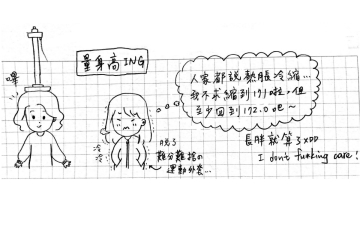 量身高ING
嗶
人家都說熱脹冷縮...
我不求縮到171啦，但
至少回到172.0 oe~
冷
冷
脫了
難分難捨的
運動外套...
長胖就算了XDD
I don't fu*king care!